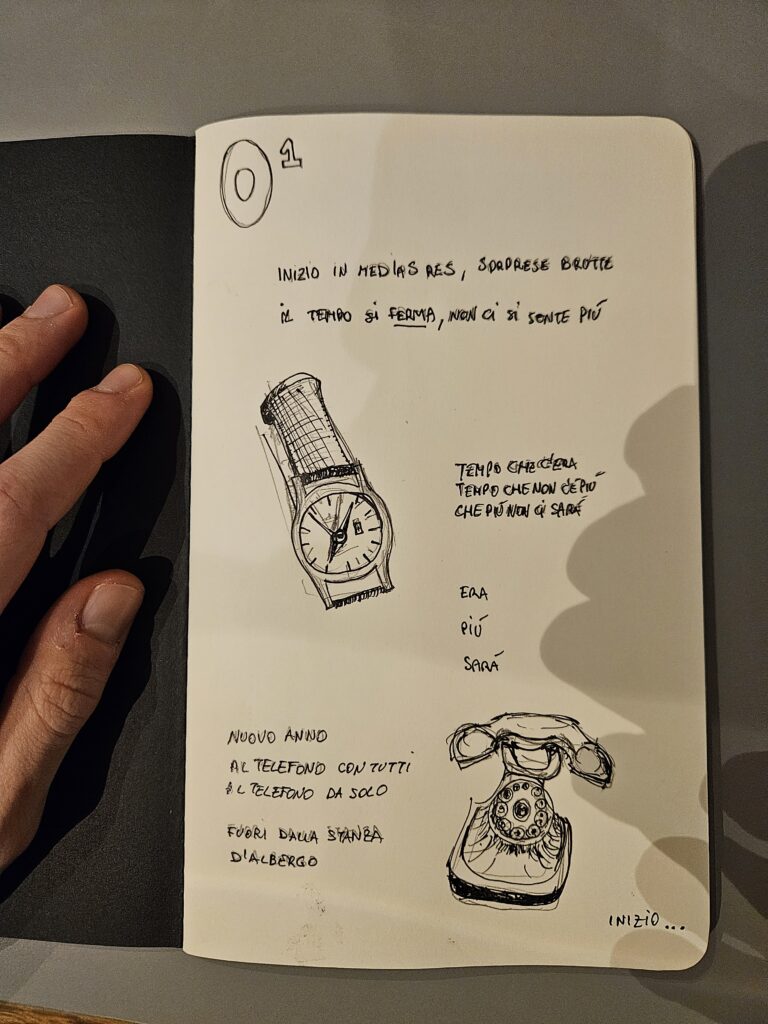 0 1
INIZIO IN MEDIAS RES, SORPRESE BRUTTE
IL TEMPO SI FERMA, NON CI SI SENTE PIÚ
TEMPO CHE C'ERA
TEMPO CHE NON C'É PIÚ
CHE PIÚ NON CI SARÁ
ERA
PIÚ
SARÁ
NUOVO ANNO
AL TELEFONO CON TUTTI
AL TELEFONO DA SOLO
FUORI DALLA STANZA
D'ALBERGO
INIZIO...